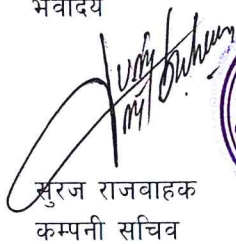 भवदिय
सुरज राजवाहक
कम्पनी सचिव